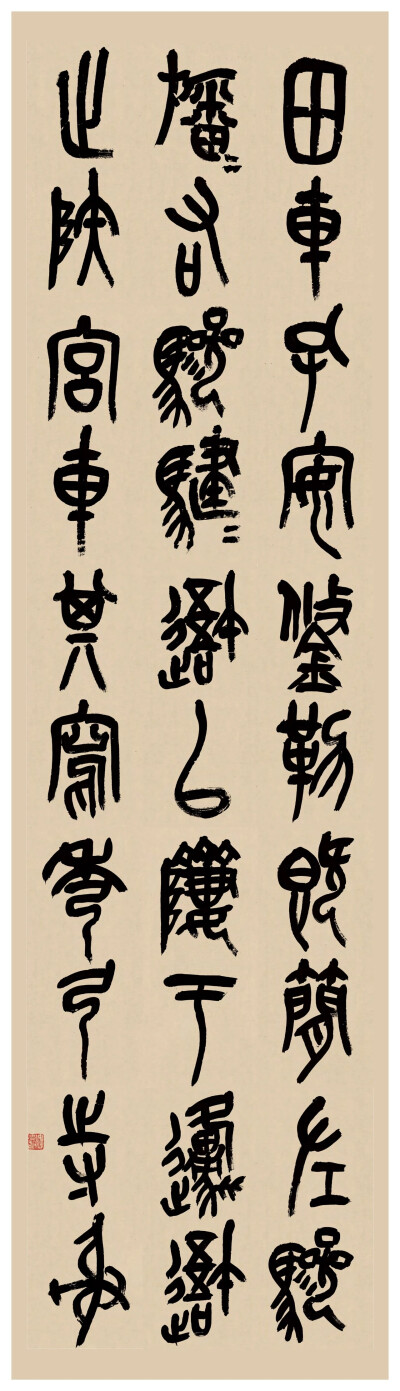 田車孔安鋚勒既簡左驂
旛=右驂騝=吾以隮于邍吾
止陝宮車其寫秀弓寺射